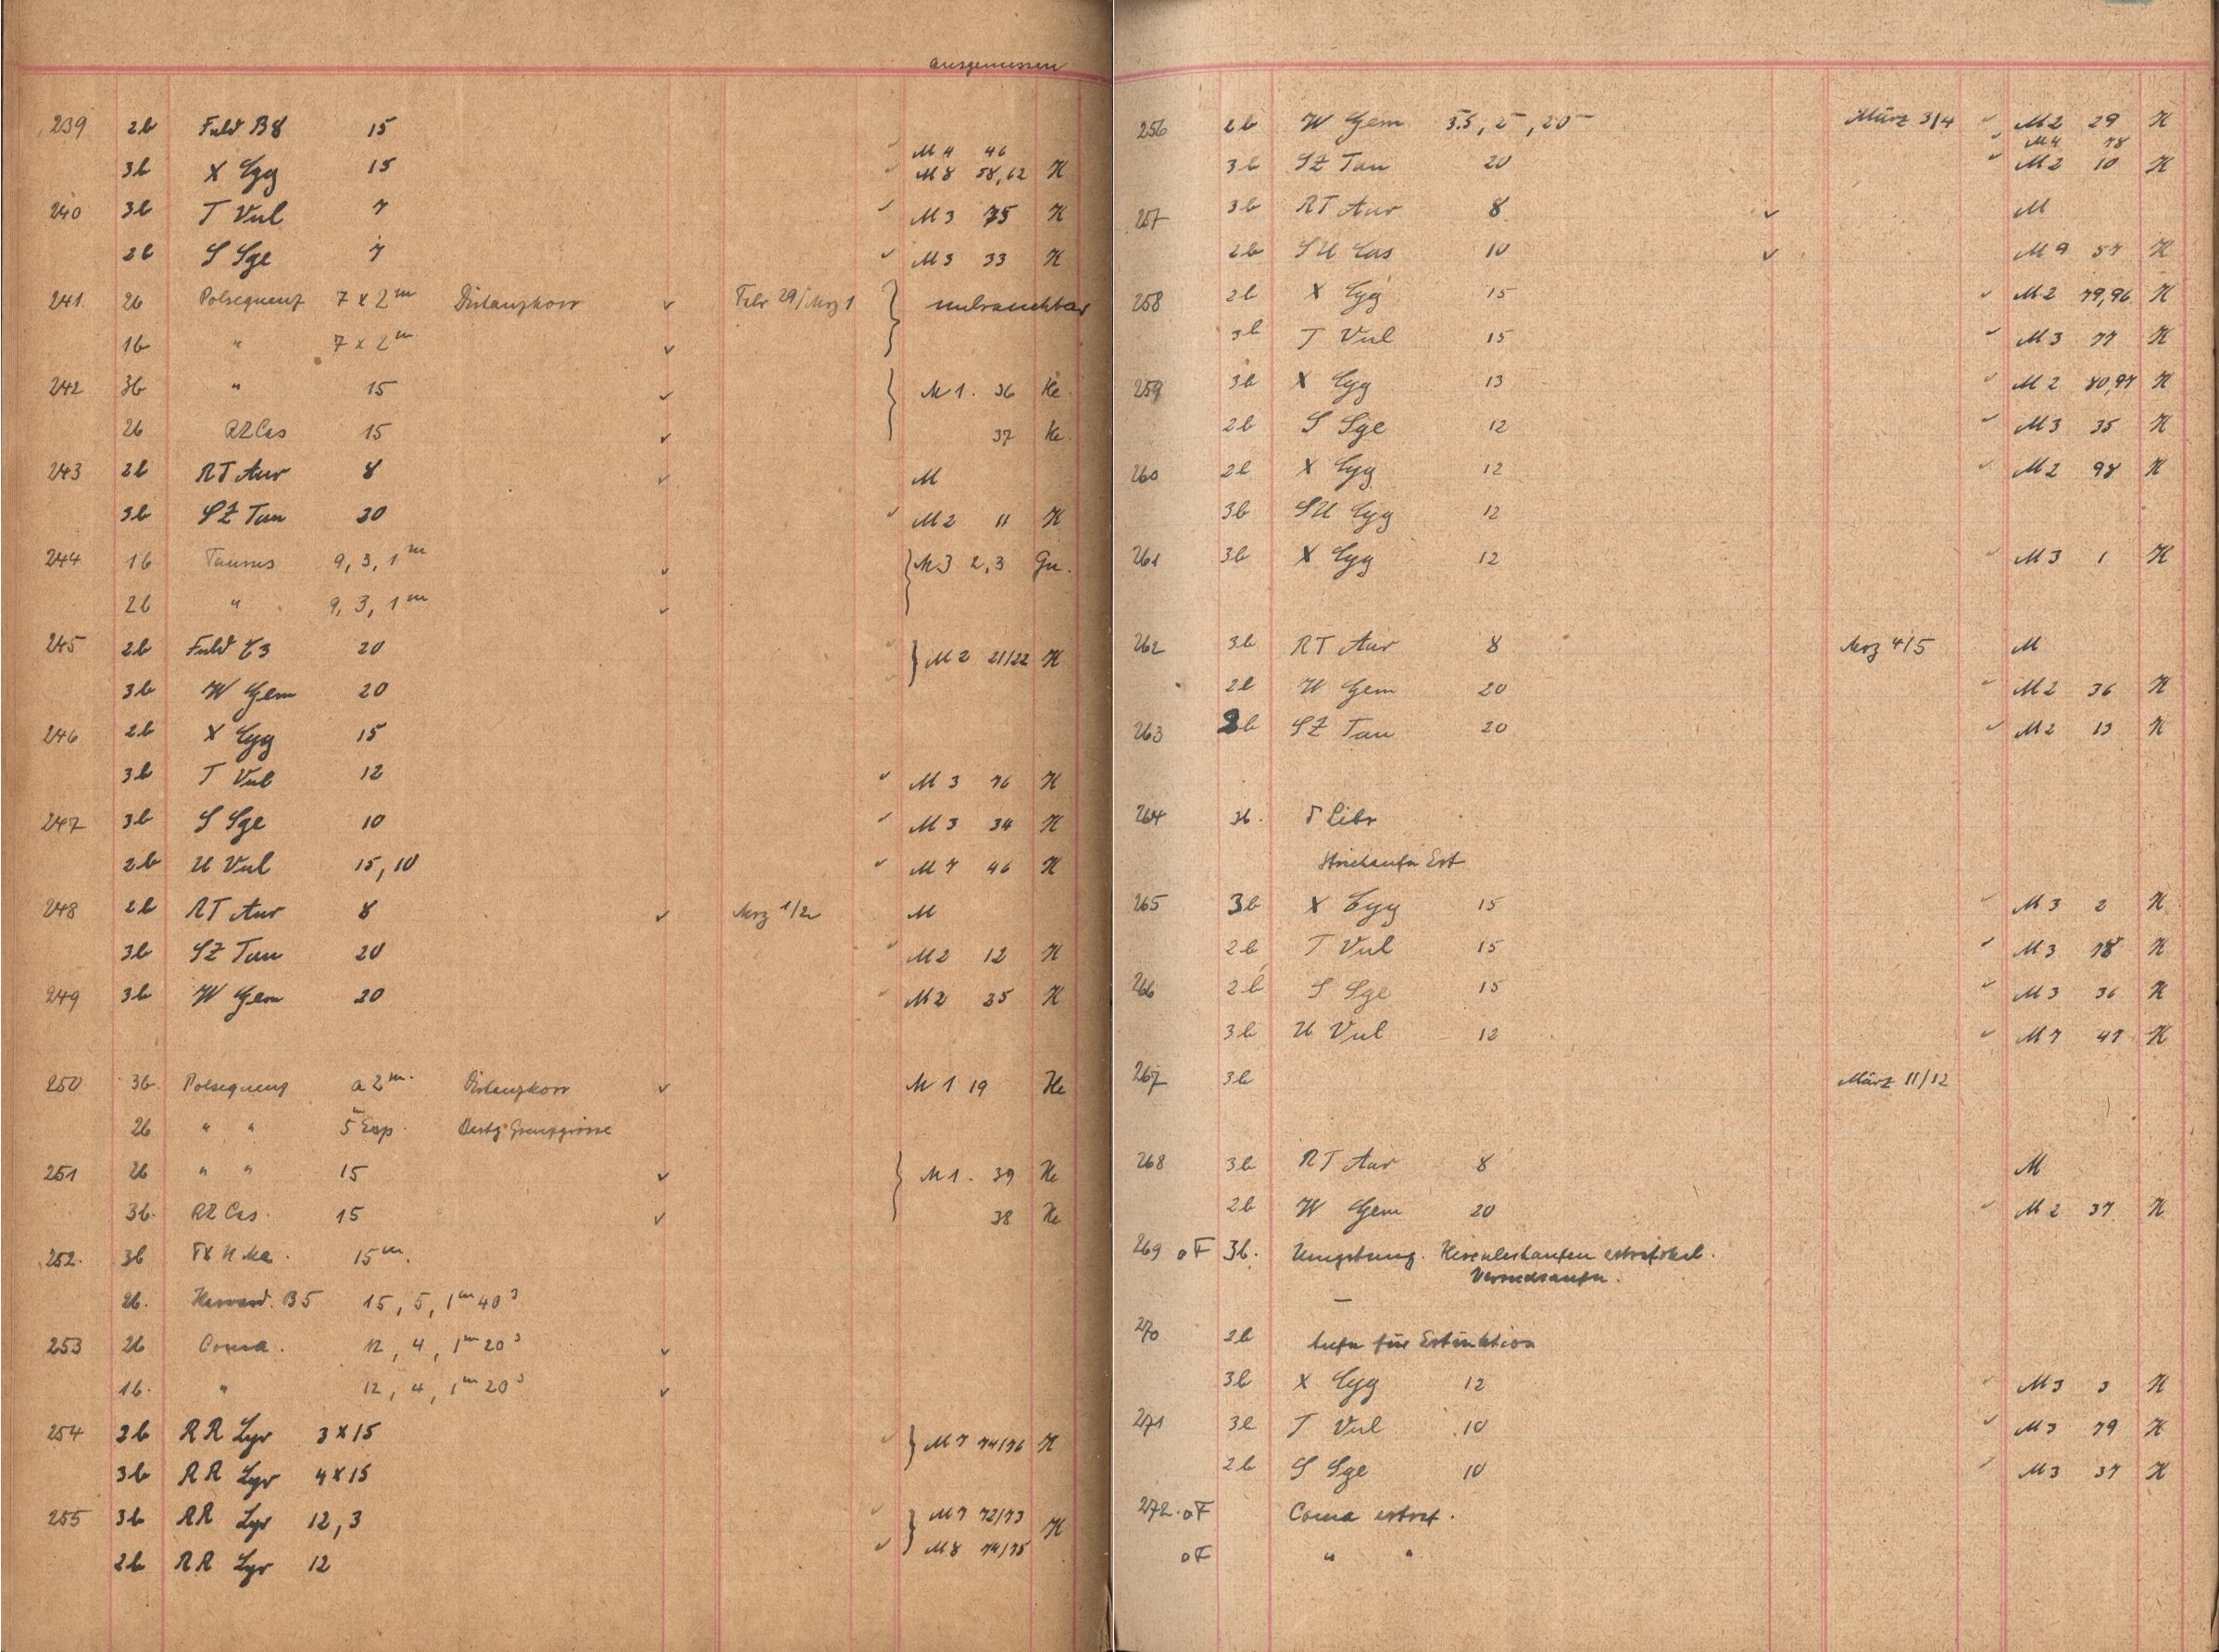 ausgemessen
239 2b Feld B8 15
M4 46
3b X Cyg 15 M8 58,62 H
240 3b T Vul 7 M3 75 H
2b S Sge 7 M3 33 H
241 2b Polsequenz 7 x 2m Distanzkorr ✓ Febr 29/Mrz 1 } unbrauchbar
1b " 7 x 2m ✓
242 3b " 15 ✓ } M1. 36 He.
2b RZ Cas 15 ✓ 37 He.
243 2b RT Aur 8 ✓ M
3b SZ Tau 30 M2 11 H
244 1b Taurus 9, 3, 1m ✓ } M3 2,3 Gu.
2b " 9, 3, 1m ✓
245 2b Feld C3 20 } M2 21/22 H
3b W Gem 20
246 2b X Cyg 15
3b T Vul 12 M3 76 H
247 3b S Sge 10 M3 34 H
2b U Vul 15, 10 M7 46 H
248 2b RT Aur 8 ✓ Mrz 1/2 M
3b SZ Tau 20 M2 12 H
249 3b W Gem 20 M2 35 H
250 3b. Polsequenz a 2m. Distanzkorr ✓ M1 19 He
2b " " 5 Exp. Grenzgrösse
251 2b " " 15 ✓ } M1. 39 He
3b. RZ Cas. 15 ✓ 38 He
252. 3b TX U Ma. 15m.
2b. Harvard. B5 15, 5, 1m 40s
253 2b Coma. 12, 4, 1m 20s ✓
1b. " 12, 4, 1m 20s ✓
254 2b RR Lyr 3 x 15 } M7 74/76 H
3b RR Lyr 4 x 15
255 3b RR Lyr 12, 3 } M7 72/73 H
2b RR Lyr 12 M8 74/75
256 2b W Gem 3.5, 2, 20 März 3/4 M2 29 H
M4 78
3b SZ Tau 20 M2 10 H
257 3b RT Aur 8 ✓ M
2b SU Cas 10 ✓ M9 57 H
258 2b X Cyg 15 M2 79,96 H
3b T Vul 15 M3 77 H
259 3b X Cyg 13 M2 80,97 H
2b S Sge 12 M3 35 H
260 2b X Cyg 12 M2 98 H
3b SU Cyg 12
261 3b X Cyg 12 M3 1 H
262 3b RT Aur 8 Mrz 4/5 M
2b W Gem 20 M2 36 H
263 2b SZ Tau 20 M2 13 H
264 3b. δ Libr
Strichaufn Ext
265 3b X Cyg 15 M3 2 H
2b T Vul 15 M3 78 H
266 2b S Sge 15 M3 36 H
3b U Vul 12 M7 47 H
267 3b März 11/12
268 3b RT Aur 8 M
2b W Gem 20 M2 37 H
269 oF 3b. Umgebung. Herculeshaufen extrafokal.
Versuchsaufn.
270 2b Aufn für Extinktion
3b X Cyg 12 M3 3 H
271 3b T Vul 10 M3 79 H
2b S Sge 10 M3 37 H
272. oF Coma extraf.
oF " "